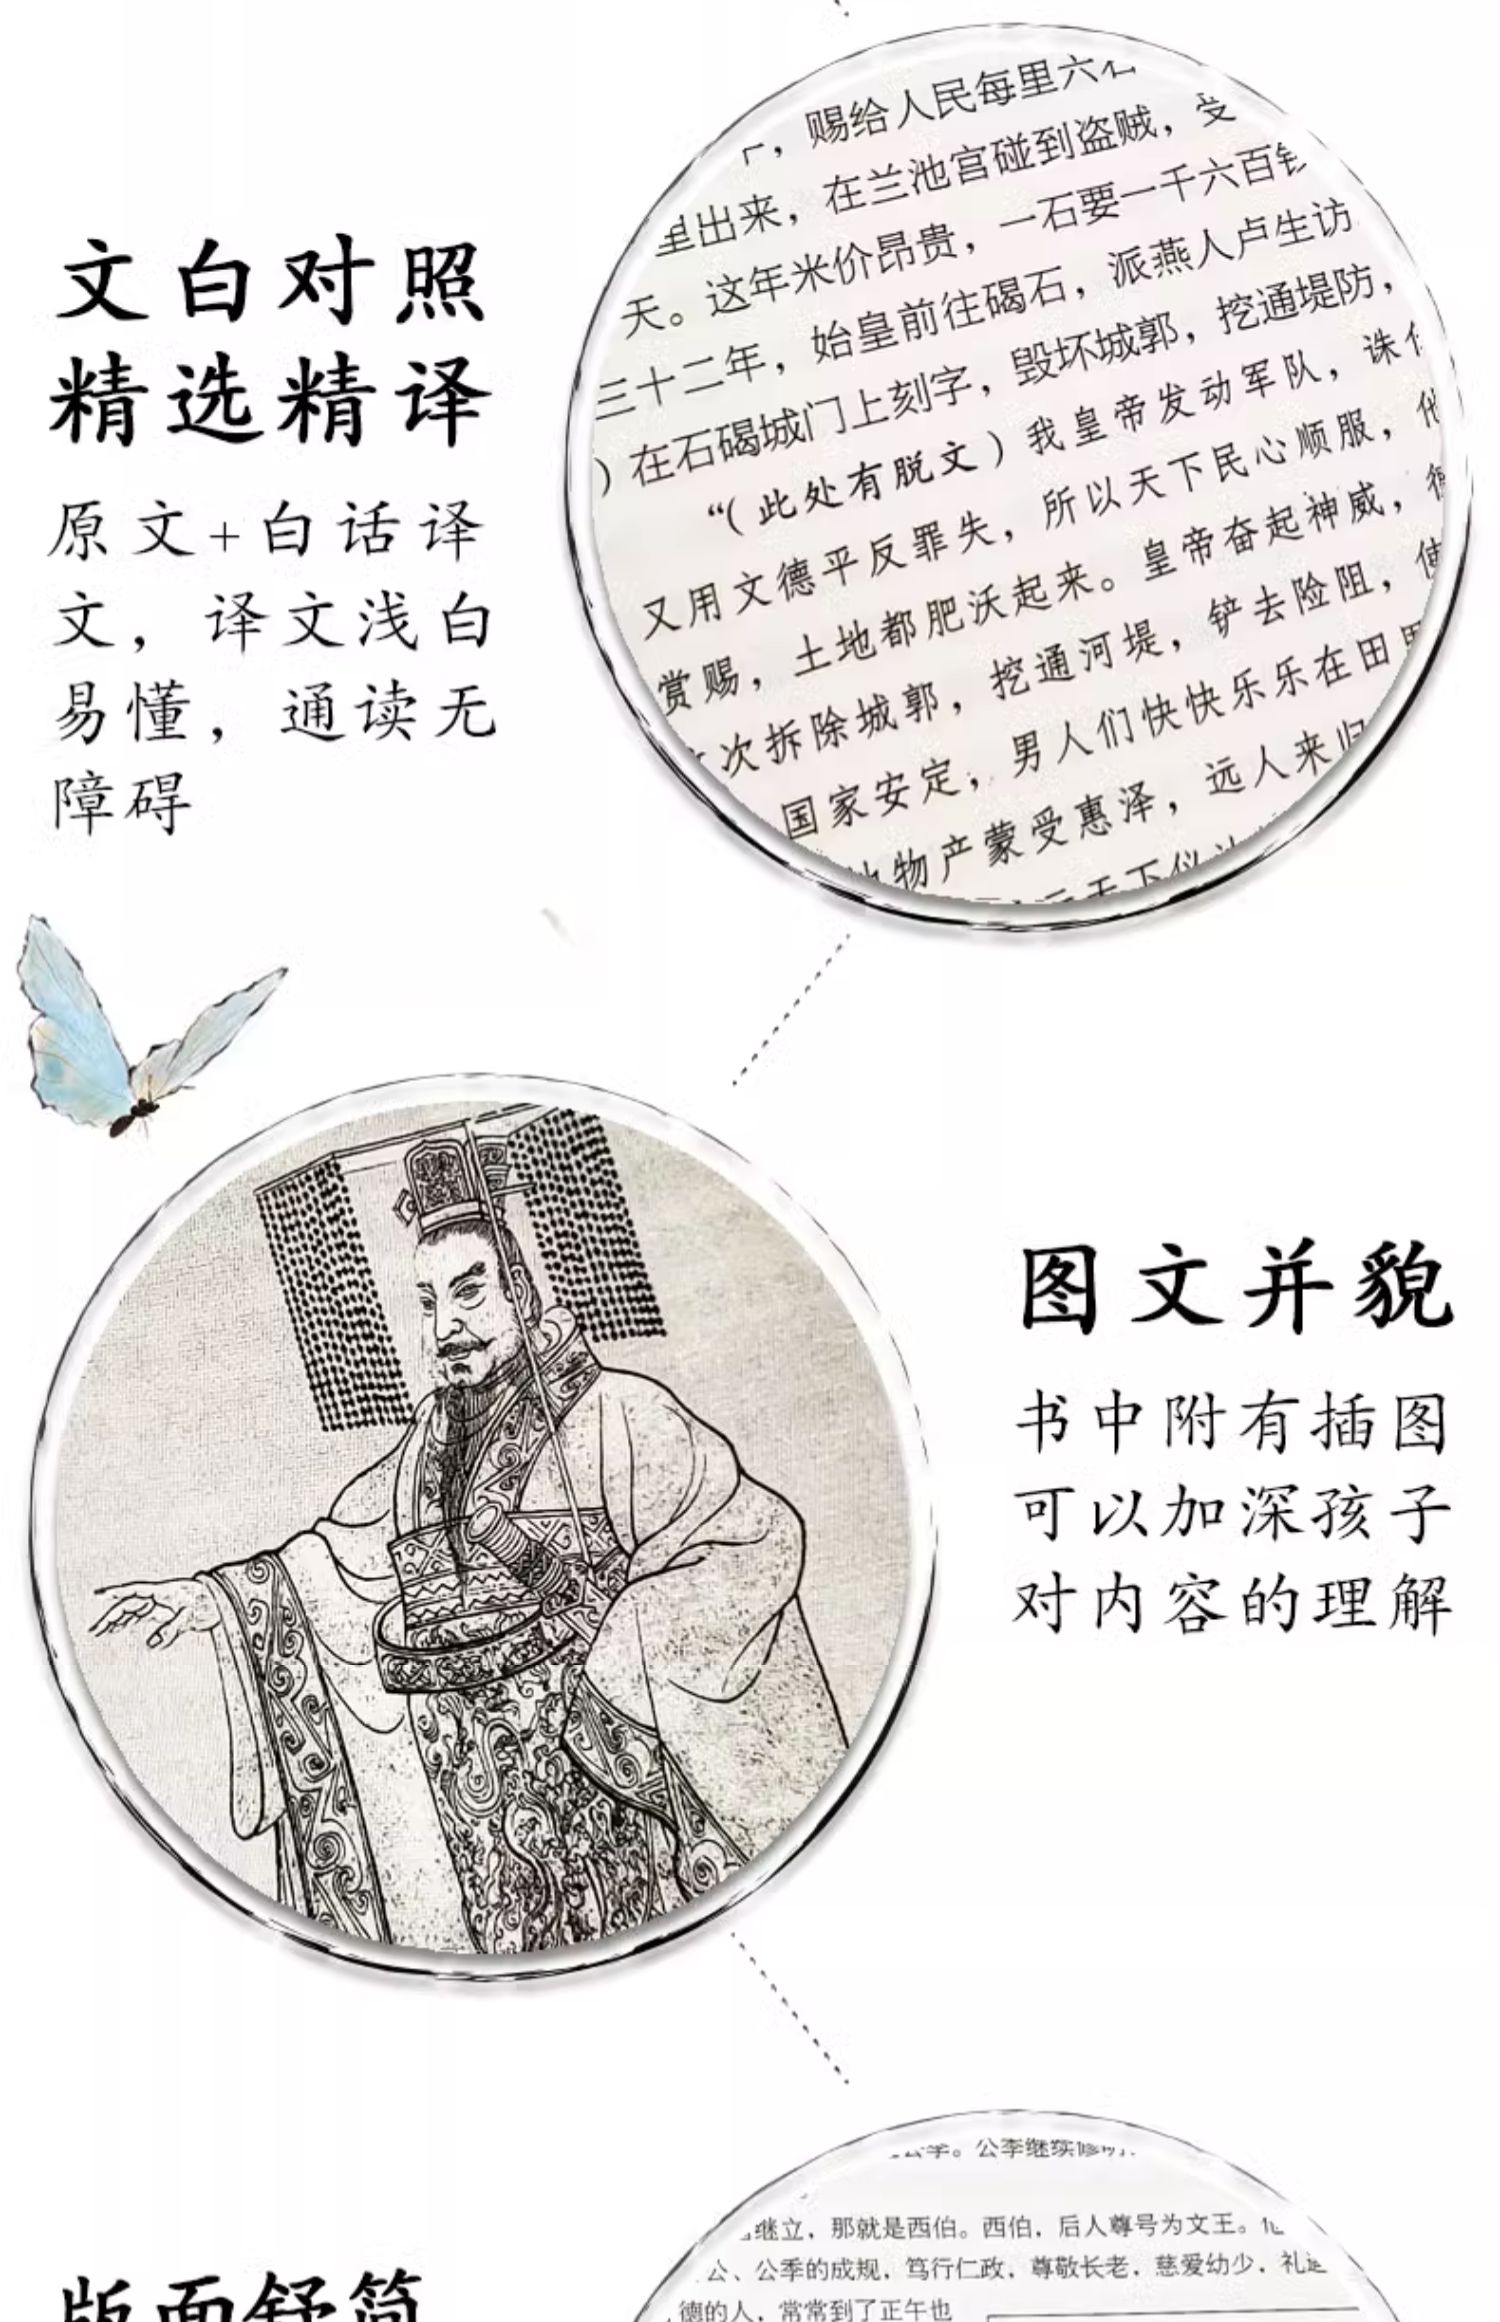 文白对照
精选精译
原文+白话译
文，译文浅白
易懂，通读无
障碍
，赐给人民每里六石
里出来，在兰池宫碰到盗贼，受
天。这年米价昂贵，一石要一千六百钱
三十二年，始皇前往碣石，派燕人卢生访
）在石碣城门上刻字，毁坏城郭，挖通堤防，
“（此处有脱文）我皇帝发动军队，诛
又用文德平反罪失，所以天下民心顺服，
赏赐，土地都肥沃起来。皇帝奋起神威，
次拆除城郭，挖通河堤，铲去险阻，使
国家安定，男人们快快乐乐在田
物产蒙受惠泽，远人来归
天下仪
图文并貌
书中附有插图
可以加深孩子
对内容的理解
。公季继续修
继立，那就是西伯。西伯，后人尊号为文王。
公、公季的成规，笃行仁政，尊敬长老，慈爱幼少，礼
德的人，常常到了正午也
版面舒简